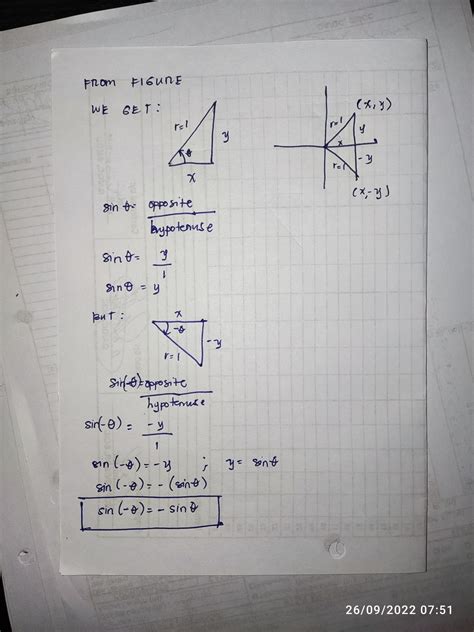 FROM FIGURE
WE GET:
r=1
θ
y
x
(x,y)
r=1
y
x
-y
r=1
(x,-y)
sin θ= opposite
hypotenuse
sin θ= y
1
sin θ = y
but:
x
-θ
-y
r=1
sin(-θ)=opposite
hypotenuse
sin(-θ)= -y
1
sin (-θ)=-y ; y= sin θ
sin (-θ)= - (sin θ)
sin (-θ)= - sin θ
26/09/2022 07:51